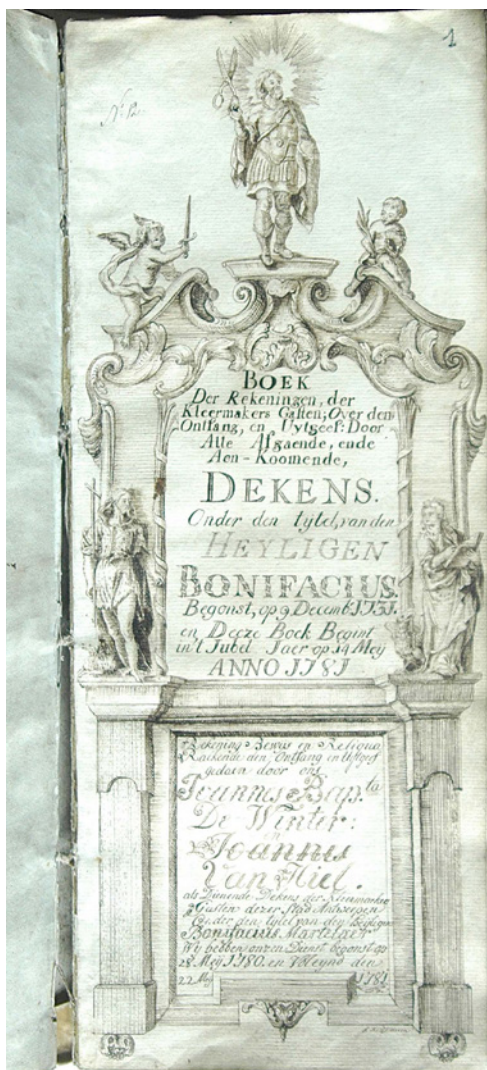 1
BOEK
Der Rekeningen, der
Kleermakers Gasten, Over den
Ontfang, en Uytgeef: Door
Alle Afgaende, ende
Aen-Koomende,
DEKENS.
Onder den tytel, van den
HEYLIGEN
BONIFACIUS.
Begonst, op 9 Decemb. 1731.
en Deeze Boek Begint
in't Jubel Jaer op 14 Meij
ANNO 1781
Rekening Bewus en Reliqua
Raekende den Ontfang en Uijtgeef
gedaen door ons
Joannes Bap.ta
De Winter:
en
Joannes
Van Hiel.
als Dienende Dekens der Kleermaekers
Gasten dezer Stad Antwerpen
Onder den tytel van den Heyligen
Bonifacius. Martelaer
Wy hebben onzen Dienst begonst op
28 Meij 1780. en den
22 Meij 1781